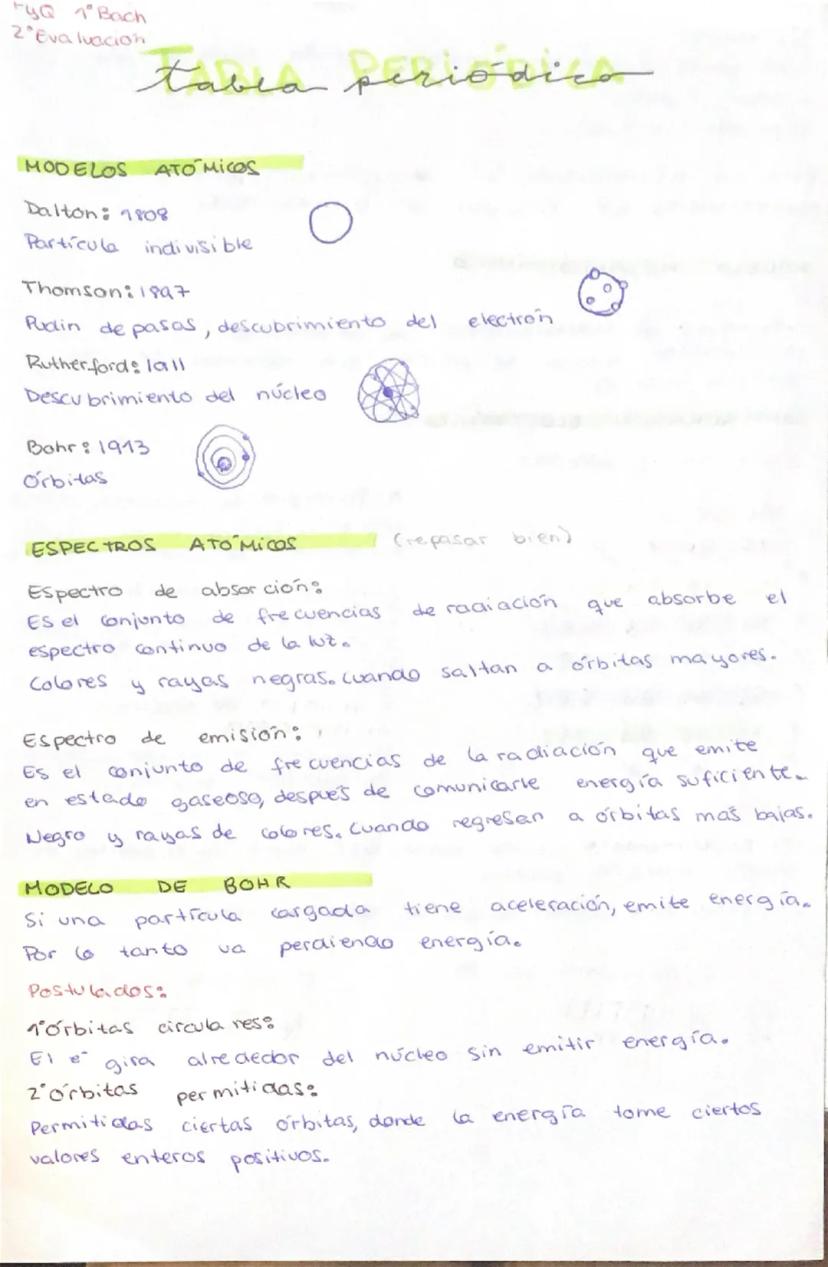 FyQ 1º Bach
2º Evaluación
TABLA PERIÓDICA
tabla periódica
MODELOS ATÓMICOS
Dalton: 1808
Partícula indivisible
Thomson: 1897
Pudin de pasas, descubrimiento del electrón
Rutherford: 1911
Descubrimiento del núcleo
Bohr: 1913
Órbitas
ESPECTROS ATÓMICOS (repasar bien)
Espectro de absorción:
Es el conjunto de frecuencias de radiación que absorbe el
espectro continuo de la luz.
Colores y rayas negras. Cuando saltan a órbitas mayores.
Espectro de emisión:
Es el conjunto de frecuencias de la radiación que emite
en estado gaseoso, después de comunicarle energía suficiente.
Negro y rayas de colores. Cuando regresan a órbitas más bajas.
MODELO DE BOHR
Si una partícula cargada tiene aceleración, emite energía.
Por lo tanto va perdiendo energía.
Postulados:
1º órbitas circulares:
El e⁻ gira alrededor del núcleo sin emitir energía.
2º órbitas permitidas:
Permitidas ciertas órbitas, donde la energía tome ciertos
valores enteros positivos.